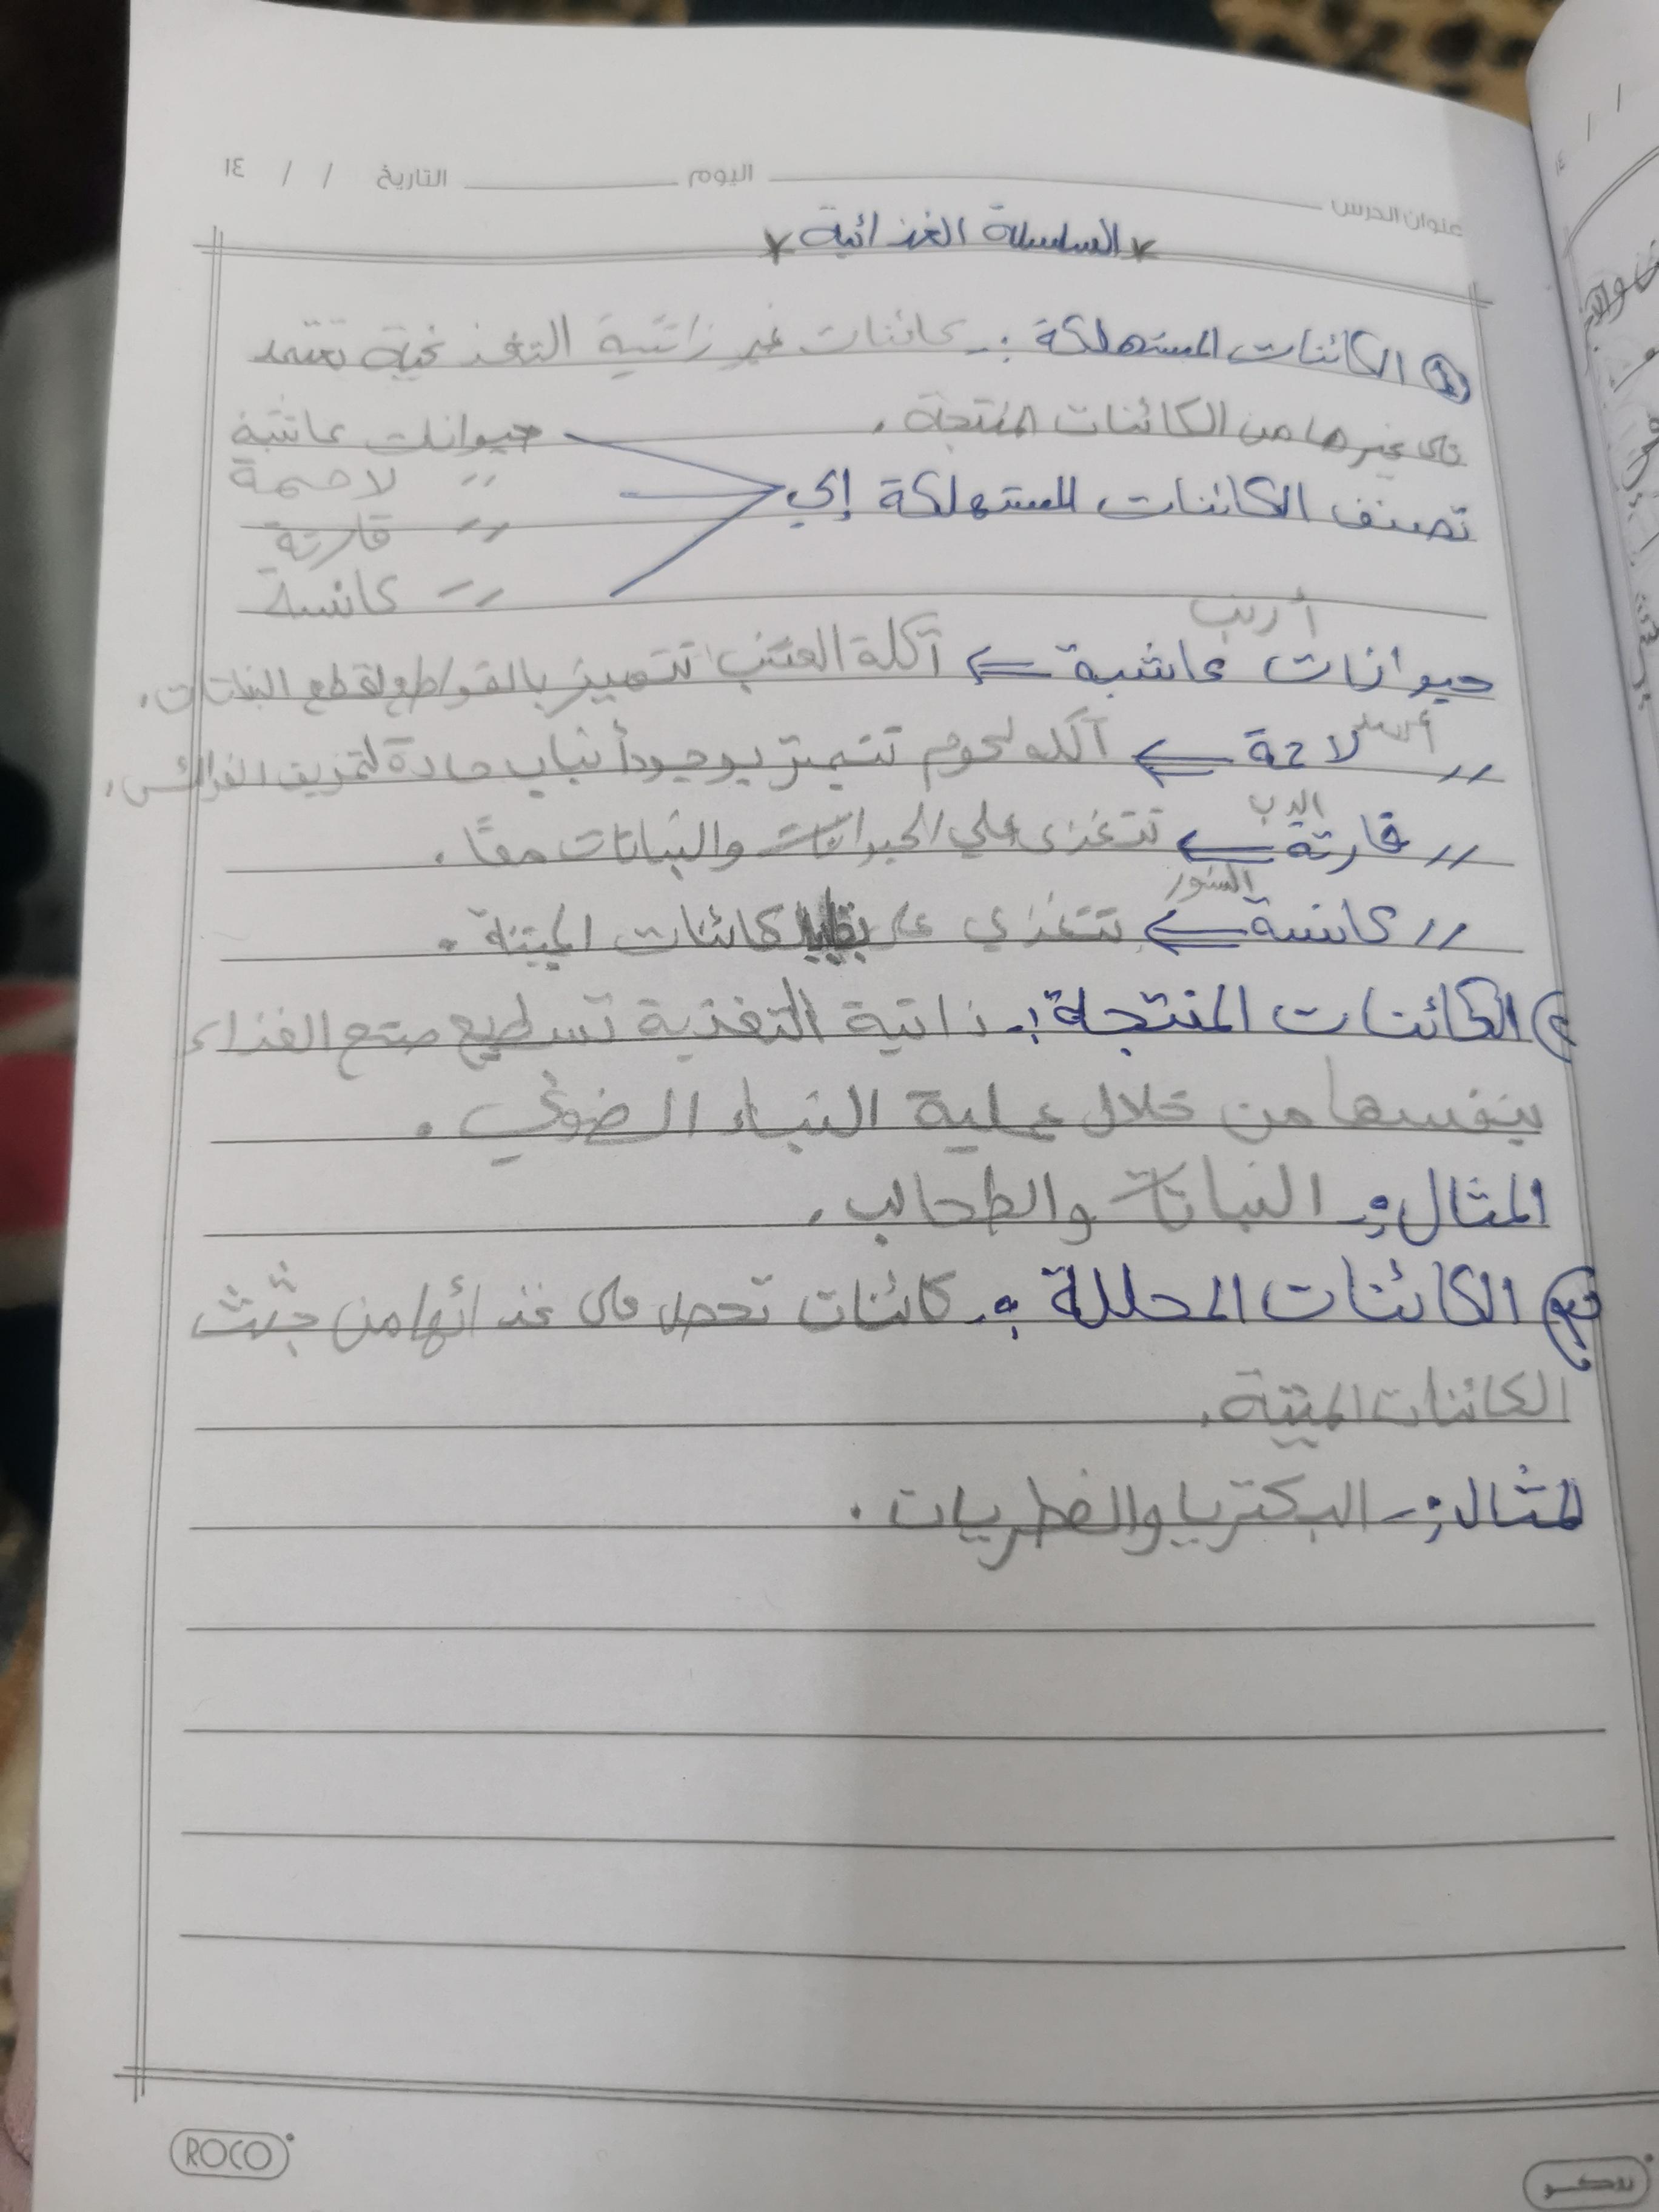 عنوان الدرس اليوم التاريخ / / ١٤
* السلسلة الغذائية *
① الكائنات المستهلكة :- كائنات غير زاتية التغذية تعتمد
على غيرها من الكائنات المنتجة .
تصنف الكائنات المستهلكة إلي
حيوانات عاشبة
〃 لاحمة
〃 قارتة
〃 كانسة
أرنب
حيوانات عاشبة ⇐ آكلة العشب تتميز بالقواطع لقطع النباتات .
أسد
〃 لاحمة ⇐ آكله لحوم تتميز بوجود أنياب حادة لتمزيق الفرائس .
الدب
〃 قارتة ⇐ تتغزى علي الحيوانات والنباتات معًا .
النسور
〃 كانسة ⇐ تتغذي على بقايا كائنات الميتة .
٢ الكائنات المنتجة :- ذاتية التغذية تسطيع صنع الغذاء
بنفسها من خلال عملية البناء الضوئي .
المثال :- النباتات والطحالب .
٣ الكائنات المحللة :- كائنات تحصل على غذائها من جثث
الكائنات الميتة .
المثال :- البكتريا والفطريات .
ROCO
روكو